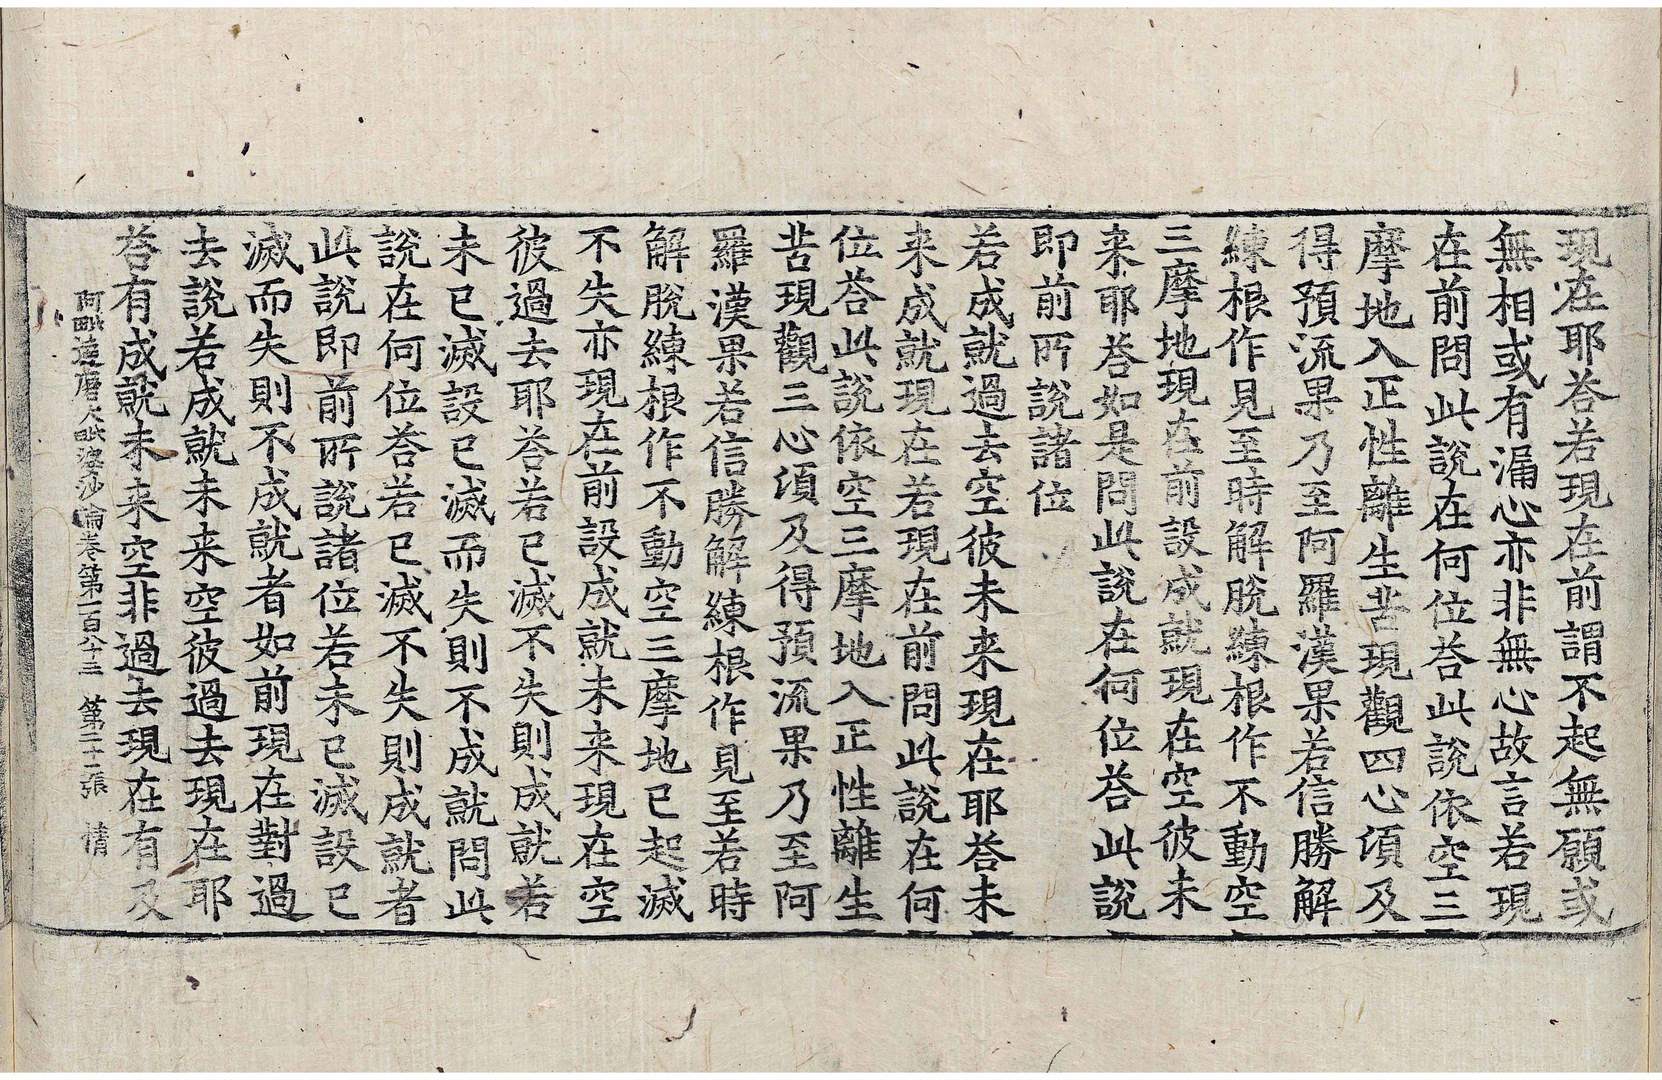 現在耶荅若現在前謂不起無願或
無相或有漏心亦非無心故言若現
在前問此說在何位荅此說依空三
摩地入正性離生苦現觀四心須及
得預流果乃至阿羅漢果若信勝解
練根作見至時解脫練根作不動空
三摩地現在前設成就現在空彼未
来耶荅如是問此說在何位荅此說
即前所說諸位
若成就過去空彼未来現在耶荅未
来成就現在若現在前問此說在何
位荅此說依空三摩地入正性離生
苦現觀三心須及得預流果乃至阿
羅漢果若信勝解練根作見至若時
解脫練根作不動空三摩地已起滅
不失亦現在前設成就未来現在空
彼過去耶荅若已滅不失則成就若
未已滅設已滅而失則不成就問此
說在何位荅若已滅不失則成就者
此說即前所說諸位若未已滅設已
滅而失則不成就者如前現在對過
去說若成就未来空彼過去現在耶
荅有成就未来空非過去現在有及
阿毗達磨大毗婆沙論卷第一百八十三 第二十一張 情